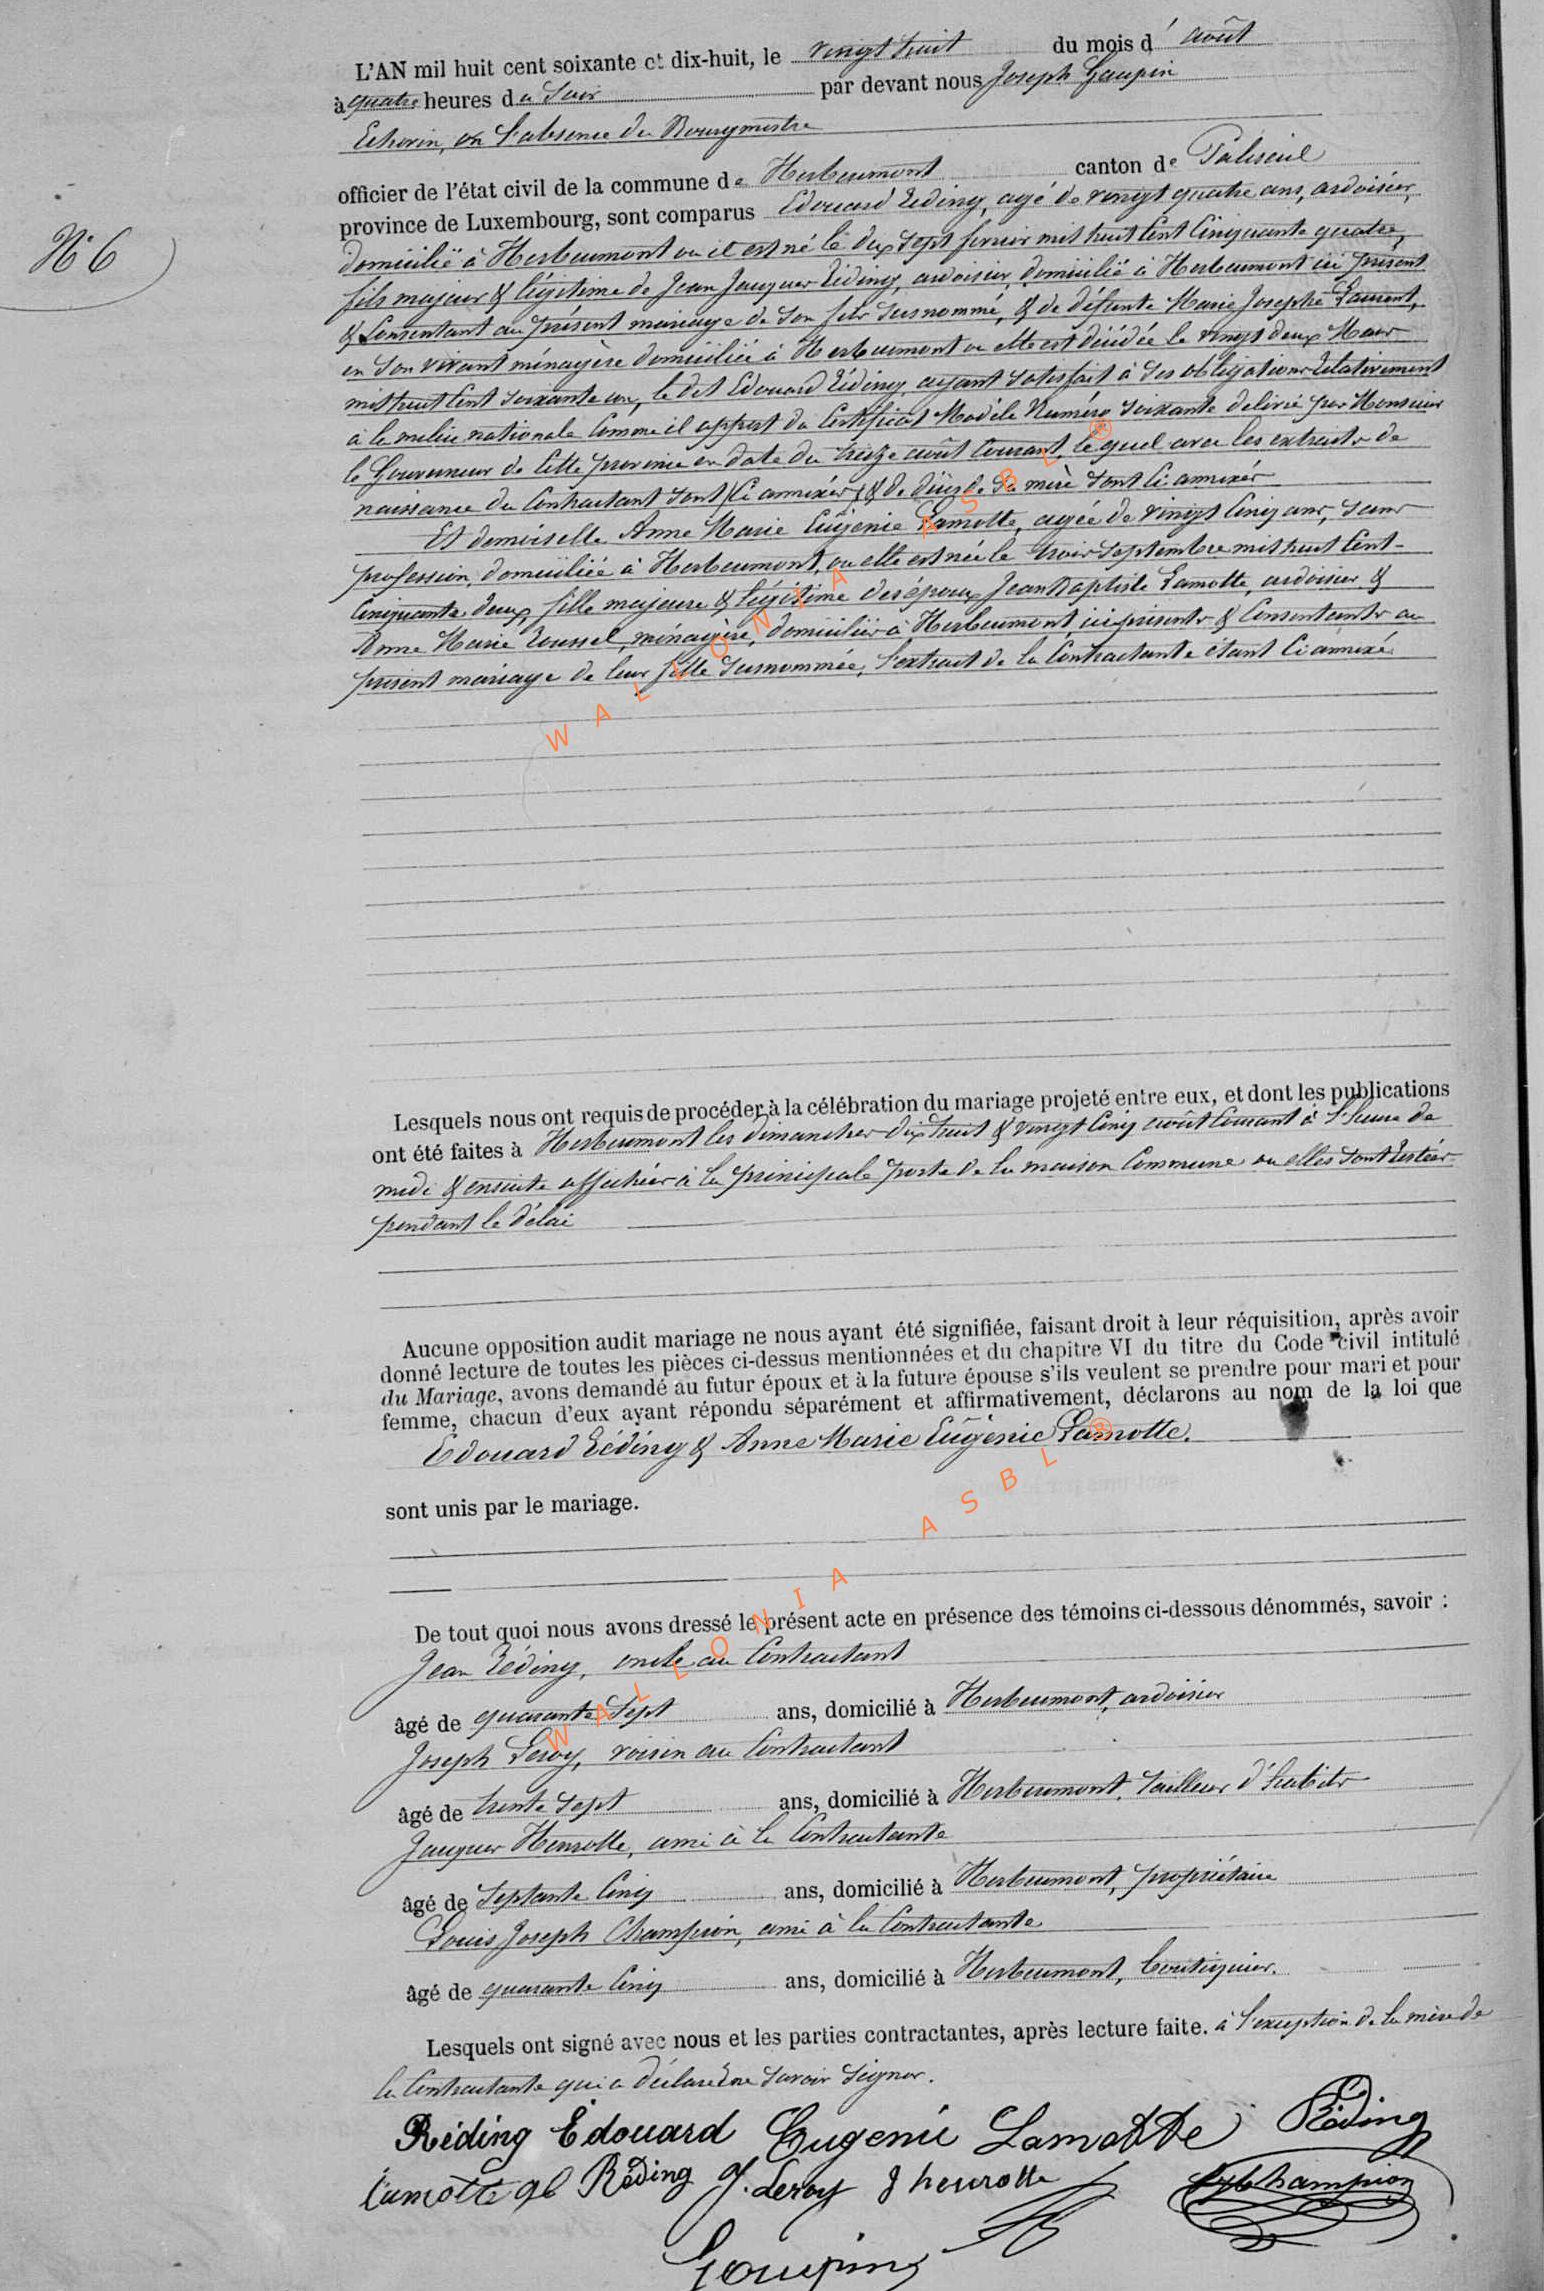 L'AN mil huit cent soixante et dix-huit, le vingt huit du mois d'août
à quatre heures du Soir par devant nous Joseph Goupin
Echevin, en l'absence du Bourgmestre
officier de l'état civil de la commune de Herbeumont canton de Paliseul
province de Luxembourg, sont comparus Edouard Réding, agé de vingt quatre ans, ardoisier,
N° 6
domicilié à Herbeumont ou il est né le dix sept fevrier mil huit Cent Cinquante quatre,
fils majeur & légitime de Jean Jacques Réding, ardoisier, domicilié à Herbeumont ici présent
& Consentant au présent mariage de son fils susnommé, & de défunte Marie Josephe Laurent,
en son vivant ménagère domiciliée à Herbeumont ou elle est décédée le vingt deux Mars
mil huit Cent soixante un, le dit Edouard Réding ayant satisfait à ses obligations relativement
à la milice nationale Comme il appert du Certificat Modèle Numéro soixante delivré par Monsieur
le Gouverneur de Cette province en date du treize août Courant, lequel avec les extraits de
naissance du Contractant sont (Ci annexés) & de décès de sa mère sont Ci annexés
Et demoiselle Anne Marie Eugénie Lamotte, agée de vingt Cinq ans, sans
profession, domiciliée à Herbeumont, ou elle est née le trois septembre mil huit Cent
Cinquante deux, fille majeure & légitime des époux Jean Baptiste Lamotte, ardoisier &
Anne Marie Roussel, ménagère, domiciliés à Herbeumont, ici présents & Consentants au
présent mariage de leur fille susnommée, l'extrait de la Contractante étant Ci annexé
WALLONIA ASBL ®
Lesquels nous ont requis de procéder à la célébration du mariage projeté entre eux, et dont les publications
ont été faites à Herbeumont les dimanches dix huit & vingt Cinq août Courant à l'heure de
midi & ensuite affichées à la principale porte de la maison Commune ou elles sont restées
pendant le délai
Aucune opposition audit mariage ne nous ayant été signifiée, faisant droit à leur réquisition, après avoir
donné lecture de toutes les pièces ci-dessus mentionnées et du chapitre VI du titre du Code civil intitulé
du Mariage, avons demandé au futur époux et à la future épouse s'ils veulent se prendre pour mari et pour
femme, chacun d'eux ayant répondu séparément et affirmativement, déclarons au nom de la loi que
Edouard Réding & Anne Marie Eugénie Lamotte.
sont unis par le mariage.
WALLONIA ASBL ®
De tout quoi nous avons dressé le présent acte en présence des témoins ci-dessous dénommés, savoir :
Jean Réding, oncle au Contractant
âgé de quarante sept ans, domicilié à Herbeumont, ardoisier
Joseph Leroy, voisin au Contractant
âgé de trente sept ans, domicilié à Herbeumont, tailleur d'habits
Jacques Henrotte, ami à la Contractante
âgé de Septante Cinq ans, domicilié à Herbeumont, propriétaire
Louis Joseph Champion, ami à la Contractante
âgé de quarante Cinq ans, domicilié à Herbeumont, boutiquier.
Lesquels ont signé avec nous et les parties contractantes, après lecture faite. à l'exception de la mère de
la Contractante qui a déclaré ne savoir signer.
Réding Edouard Eugenie Lamotte Réding
Lamotte Réding J. Leroy J henrotte Champion
Goupin